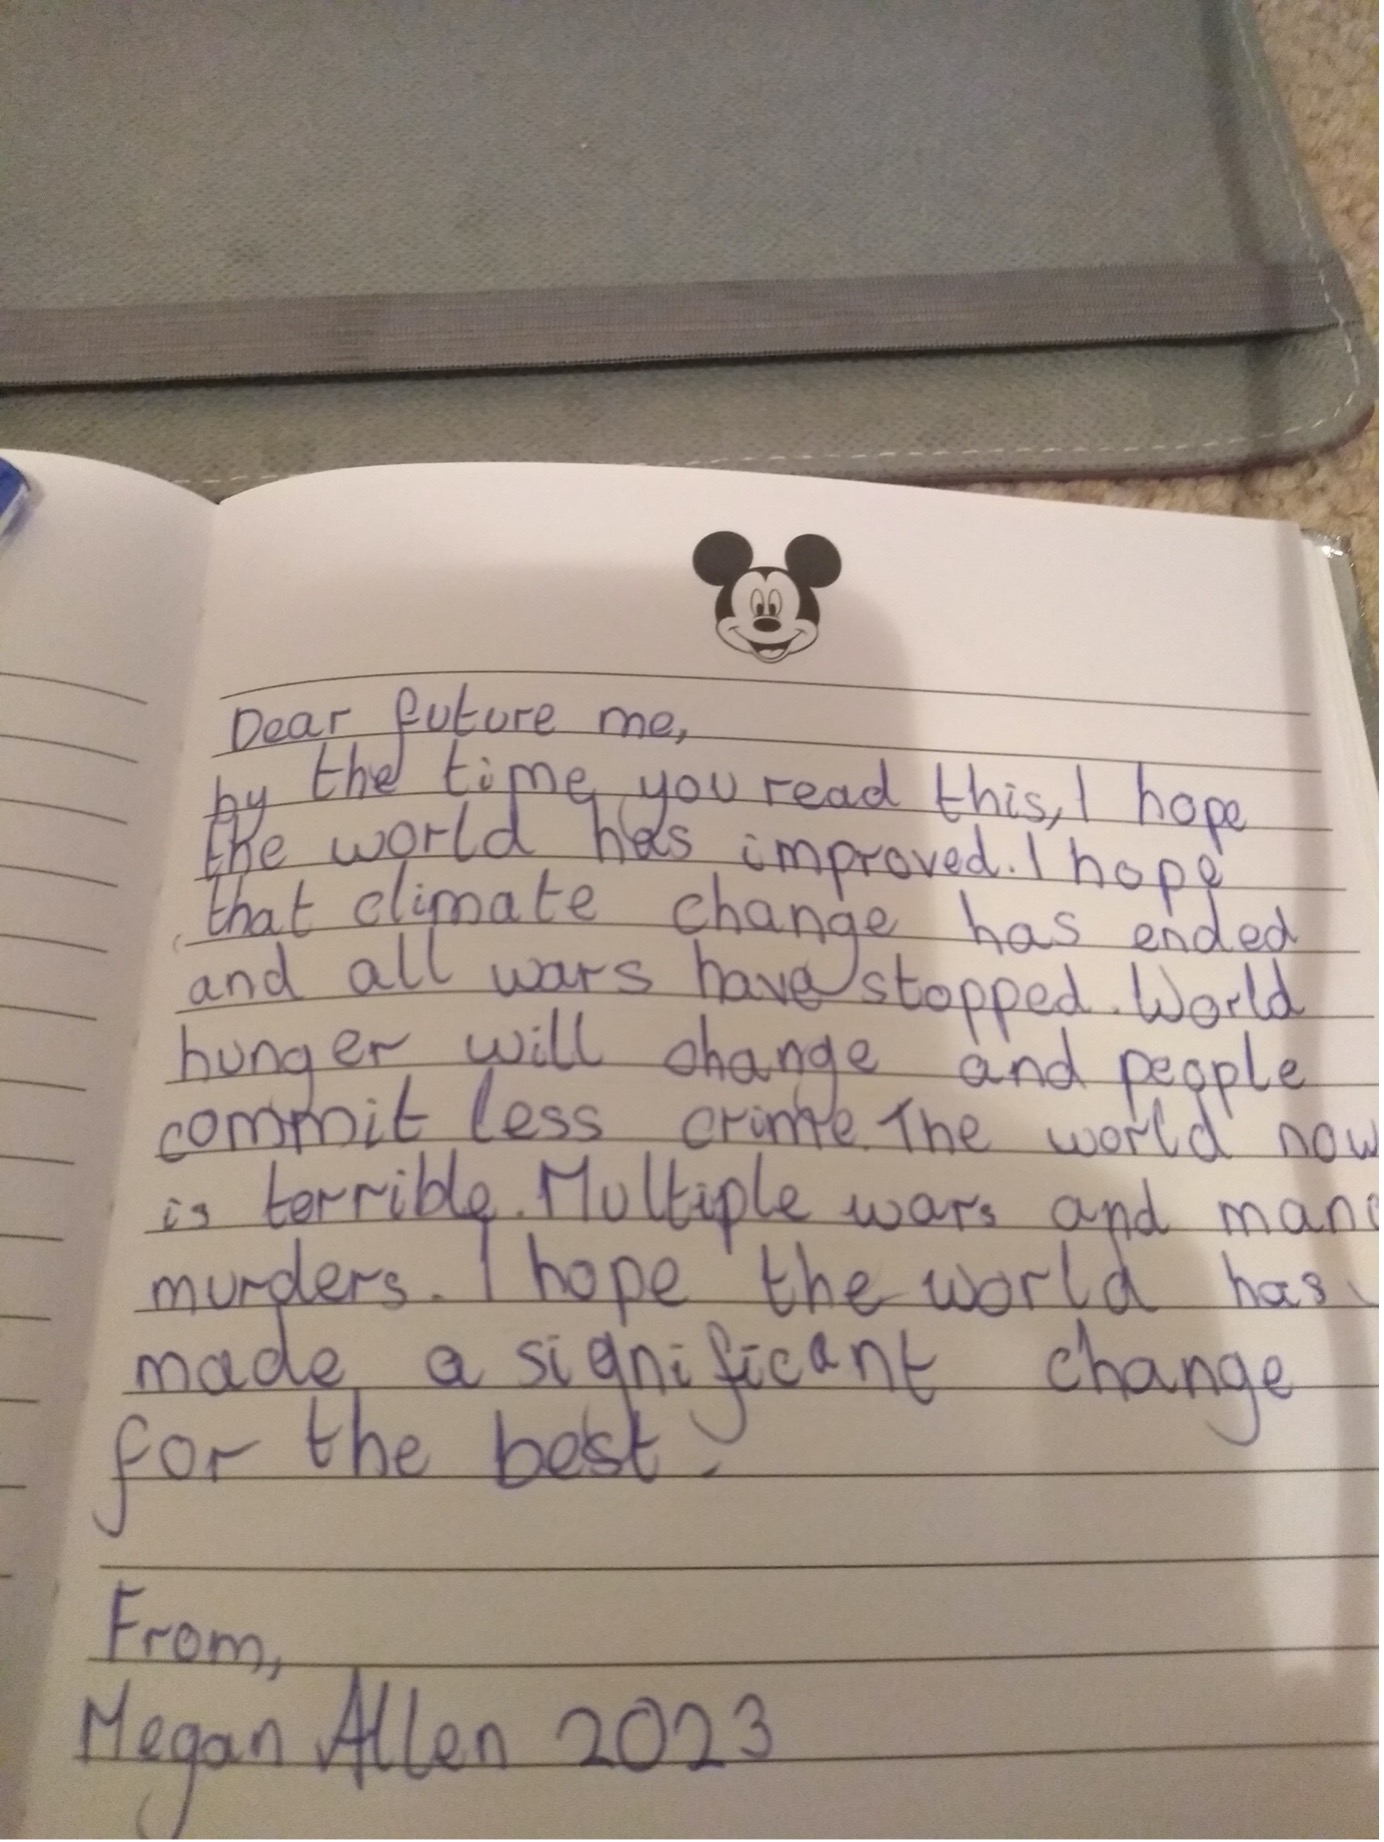 Dear future me,
by the time you read this, I hope
the world has improved. I hope
that climate change has ended
and all wars have stopped. World
hunger will change and people
commit less crime. The world now
is terrible. Multiple wars and
murders. I hope the world has
made a significant change
for the best.
From,
Megan Allen 2023